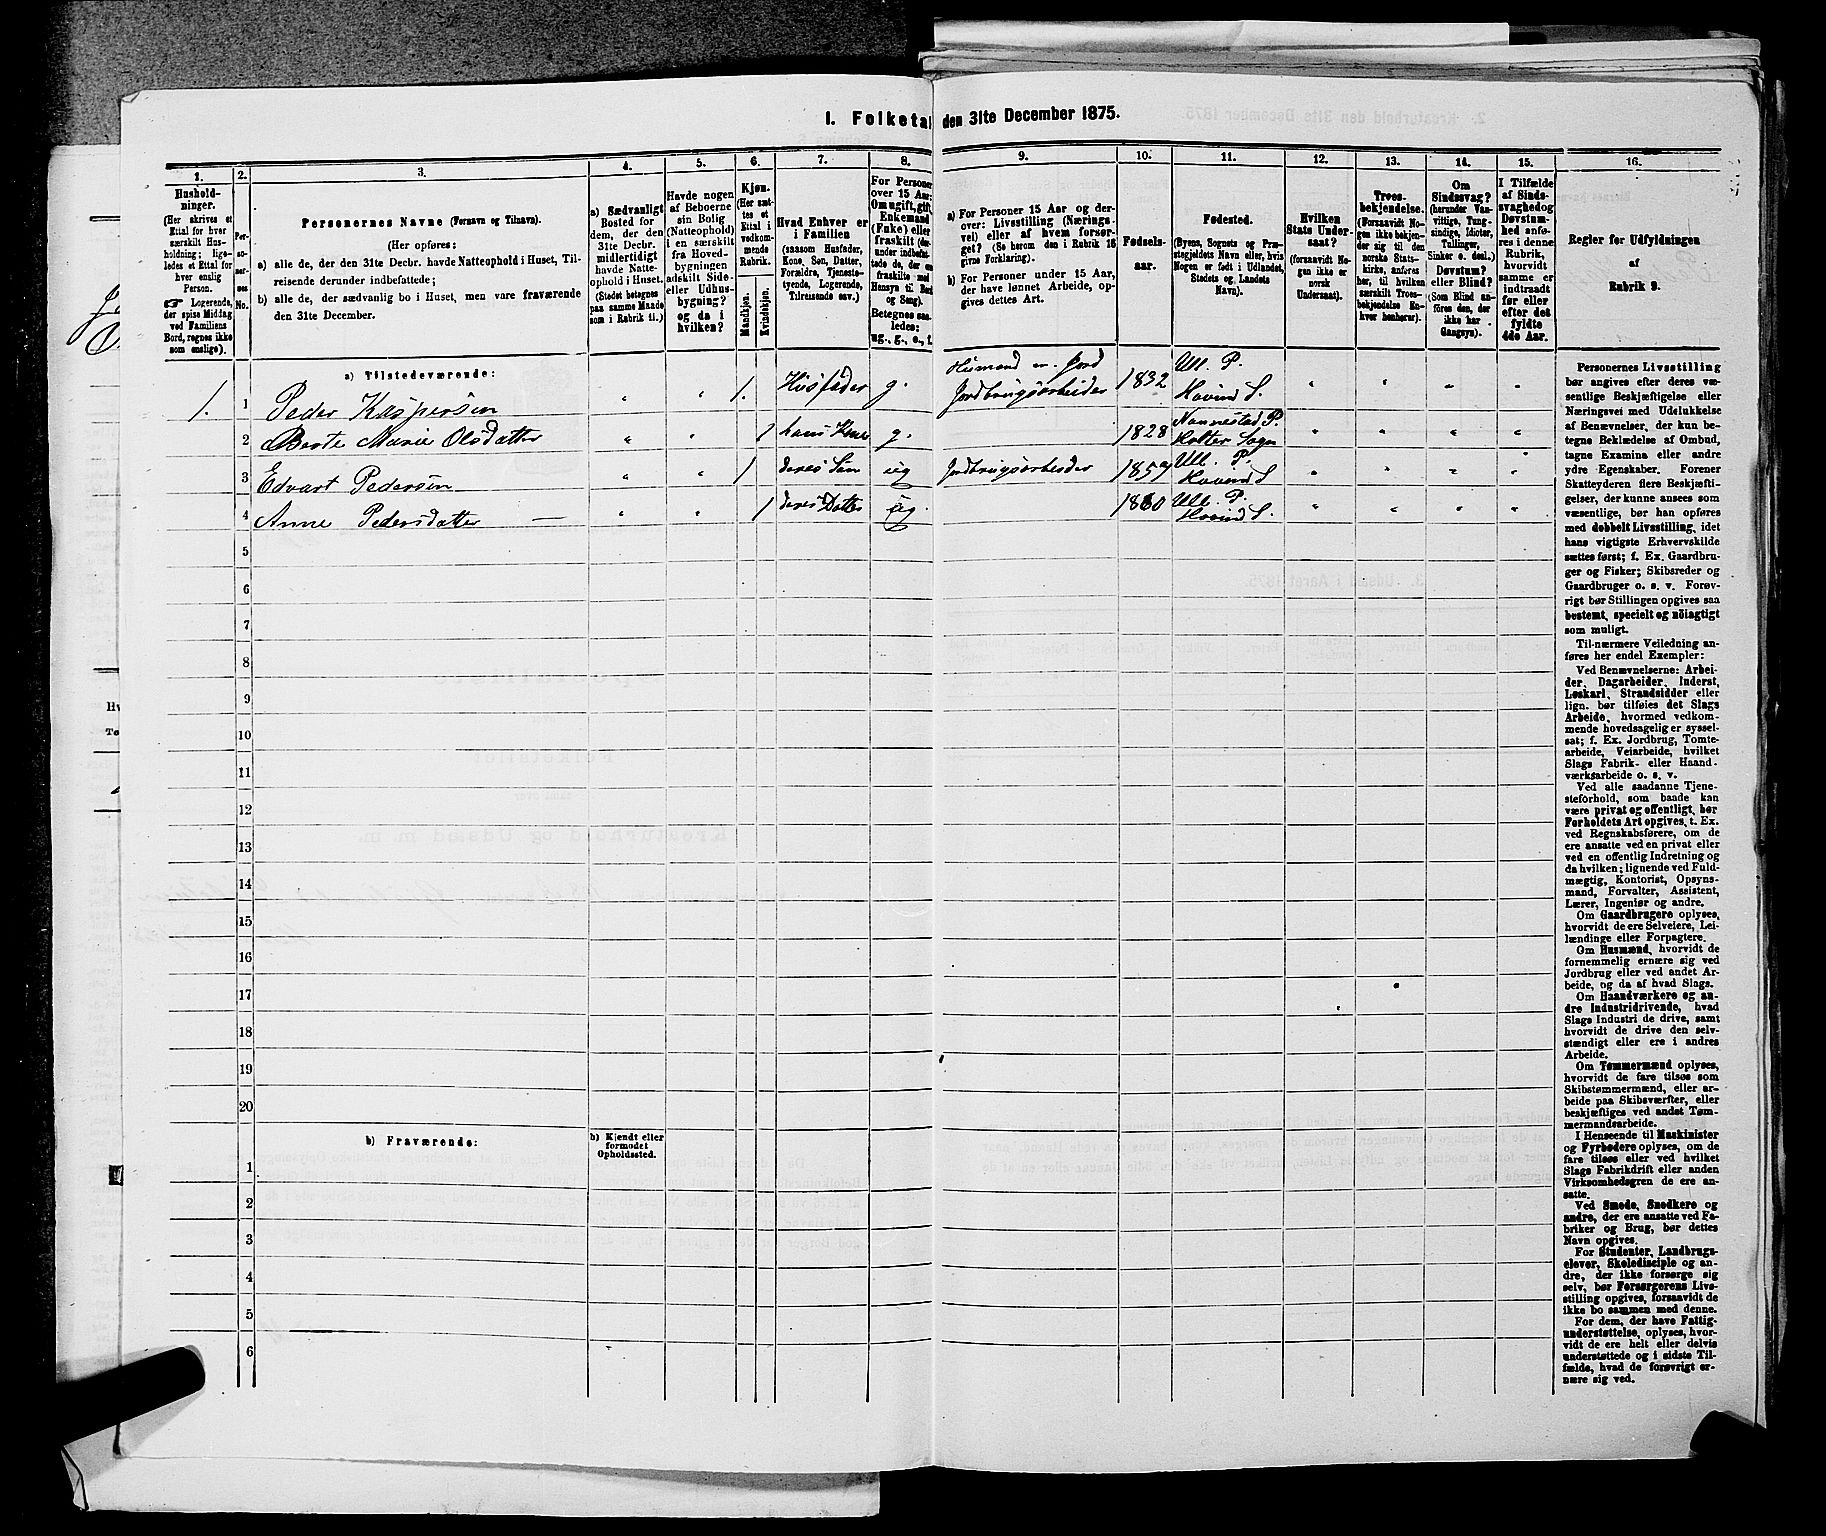 I. Folketal den 31te December 1875.
1.
Hushold-
ninger.
(Her skrives et
Ettal for hver
særskilt Hus-
holdning; lige-
ledes et Ettal for
hver enslig
Person.
Logerende,
der spise Middag
ved Familiens
Bord, regnes ikke
som enslige).
2.
Per-
soner-
nes
No.
3.
Personernes Navne (Fornavn og Tilnavn).
(Her opføres:
a) alle de, der den 31te Decbr. havde Natteophold i Huset, Til-
reisende derunder indbefattede;
b) alle de, der sædvanlig bo i Huset, men vare fraværende
den 31te December.
4.
a) Sædvanligt
Bosted for
dem, der den
31te Decbr.
midlertidigt
havde Natte-
ophold i Huset.
(Stedet betegnes
paa samme Maade
som i Rubrik 11.)
5.
Havde nogen
af Beboerne
sin Bolig
(Natteophold)
i en særskilt
fra Hoved-
bygningen
adskilt Side-
eller Udhus-
bygning?
og da i
hvilken?
6.
Kjøn.
(Her sæt-
tes et
Ettal i
vedkom-
mende
Rubrik.)
Mandkjøn.
Kvindekjøn.
7.
Hvad Enhver er
i Familien
(saasom Husfader,
Kone, Søn, Datter,
Forældre, Tjeneste-
tyende, Logerende,
Tilreisende osv.)
8.
For Personer
over 15 Aar:
Om ugift, gift,
Enkemand
(Enke) eller
fraskilt
Betegnes saa-
ledes:
ug., g., e., f.
9.
a) For Personer 15 Aar og der-
over: Livsstilling (Nærings-
vei) eller af hvem forsør-
get? (Se herom den i Rubrik 16
givne Forklaring).
b) For Personer under 15 Aar,
der have lønnet Arbeide, op-
gives dettes Art.
10.
Fødsels-
aar.
11.
Fødested.
(Byens, Sognets og Præ-
stegjeldets Navn eller, hvis
Nogen er født i Udlandet,
Stedets og Landets
Navn).
12.
Hvilken
Stats Under-
saat?
(forsaavidt No-
gen ikke er
norsk
Undersaat).
13.
Troes-
bekjendelse.
(Forsaavidt No-
gen ikke bekjen-
der sig til den
norske Stats-
kirke, anføres
her, til hvilken
særskilt Troes-
bekjendelse En-
hver henhører).
14.
Om
Sindssvag?
(herunder Van-
vittige, Tung-
sindige, Idioter,
Tullinger,
Sinker o. desl.)
Døvstum?
eller Blind?
(Som Blind an-
føres den, der
ikke har
Gangsyn).
15.
I Tilfælde
af Sinds-
svaghed og
Døvstum-
hed anfø-
res i denne
Rubrik,
hvorvidt
samme er
indtraadt
før eller
efter det
fyldte
4de Aar.
16.
Regler for Udfyldningen
af
Rubrik 9.
a) Tilstedeværende:
1. 1 Peder Kaspersen " " 1. Husfader g. Husmand m. Jord Jordbrugsarbeider 1832 Ull. P. Hovind S. " " " "
2 Berte Marie Olsdatter " " 1 hans Kone g. 1828 Nannestad P. Holter Sogn " " " "
3 Edvart Pedersen " " 1 deres Søn ug Jordbrugsarbeider 1857 Ull. P. Hovind S " " " "
4 Anne Pedersdatter — " " 1 deres Datter ug. 1860 Ull. P. Hovind S. " " " "
5
6
7
8
9
10
11
12
13
14
15
16
17
18
19
20
b) Fraværende:
b) Kjendt eller
formodet
Opholdssted.
1
2
3
4
5
6
Personernes Livsstilling
bør angives efter deres væ-
sentlige Beskjæftigelse eller
Næringsvei med Udelukkelse
af Benævnelser, der kun be-
tegne Beklædelse af Ombud,
tagne Examina eller andre
ydre Egenskaber. Forener
Skatteyderen flere Beskjæfti-
gelser, der kunne ansees som
væsentlige, bør han opføres
med dobbelt Livsstilling, idet
hans vigtigste Erhvervskilde
sættes først; f. Ex. Gaardbru-
ger og Fisker; Skibsreder og
Gaardbruger o. s. v. Forøv-
rigt bør Stillingen opgives saa
bestemt, specielt og nöiagtigt
som muligt.
Til nærmere Veiledning an-
føres her endel Exempler:
Ved Benævnelserne: Arbei-
der, Dagarbeider, Inderst,
Løskarl, Strandsidder eller
lign. bør tilføies det Slags
Arbeide, hvormed vedkom-
mende hovedsagelig er syssel-
sat; f. Ex. Jordbrug, Tomte-
arbeide, Veiarbeide, hvilket
Slags Fabrik- eller Haand-
værksarbeide o. s. v.
Ved alle saadanne Tjene-
steforhold, som baade kan
være privat og offentligt, bør
Forholdets Art opgives, t. Ex.
ved Regnskabsførere, om de
ere ansatte ved en privat eller
ved en offentlig Indretning og
da hvilken; lignende ved Fuld-
mægtig, Kontorist, Opsyns-
mand, Forvalter, Assistent,
Lærer, Ingeniør og andre.
Om Gaardbrugere oplyses,
hvorvidt de ere Selveiere, Lei-
lændinge eller Forpagtere.
Om Husmænd, hvorvidt de
fornemmelig ernære sig ved
Jordbrug eller ved andet Ar-
beide, og da af hvad Slags.
Om Haandværkere og an-
dre Industridrivende, hvad
Slags Industri de drive, samt
hvorvidt de drive den selv-
stændigt eller ere i andres
Arbeide.
Om Tømmermænd oplyses,
hvorvidt de fare tilsøs som
Skibstømmermænd, eller ar-
beide paa Skibsværfter, eller
beskjæftiges ved andet Tøm-
mermandsarbeide.
I Henseende til Maskinister
og Fyrbødere oplyses, om de
fare tilsøs eller ved hvilket
Slags Fabrikdrift eller anden
Virksomhedsgren de ere an-
satte.
Ved Smede, Snedkere og
andre, der ere ansatte ved Fa-
briker og Brug, bør dettes
Navn opgives.
For Studenter, Landbrugs-
elever, Skoledisciple og an-
dre, der ikke forsørge sig
selv, bør Forsørgerens Livs-
stilling opgives, forsaavidt de
ikke bo sammen med denne.
For dem, der have Fattig-
understøttelse, oplyses, hvor-
vidt de ere helt eller delvis
understøttede og i sidste Til-
fælde, hvad de forøvrigt er-
nære sig ved.